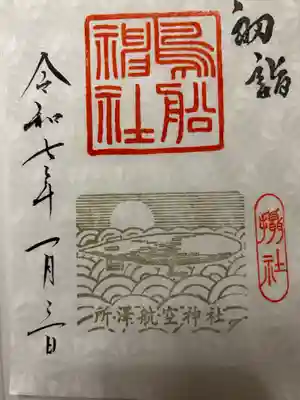 初詣
鳥船
神社
攝社
令和七年一月三日
所澤航空神社